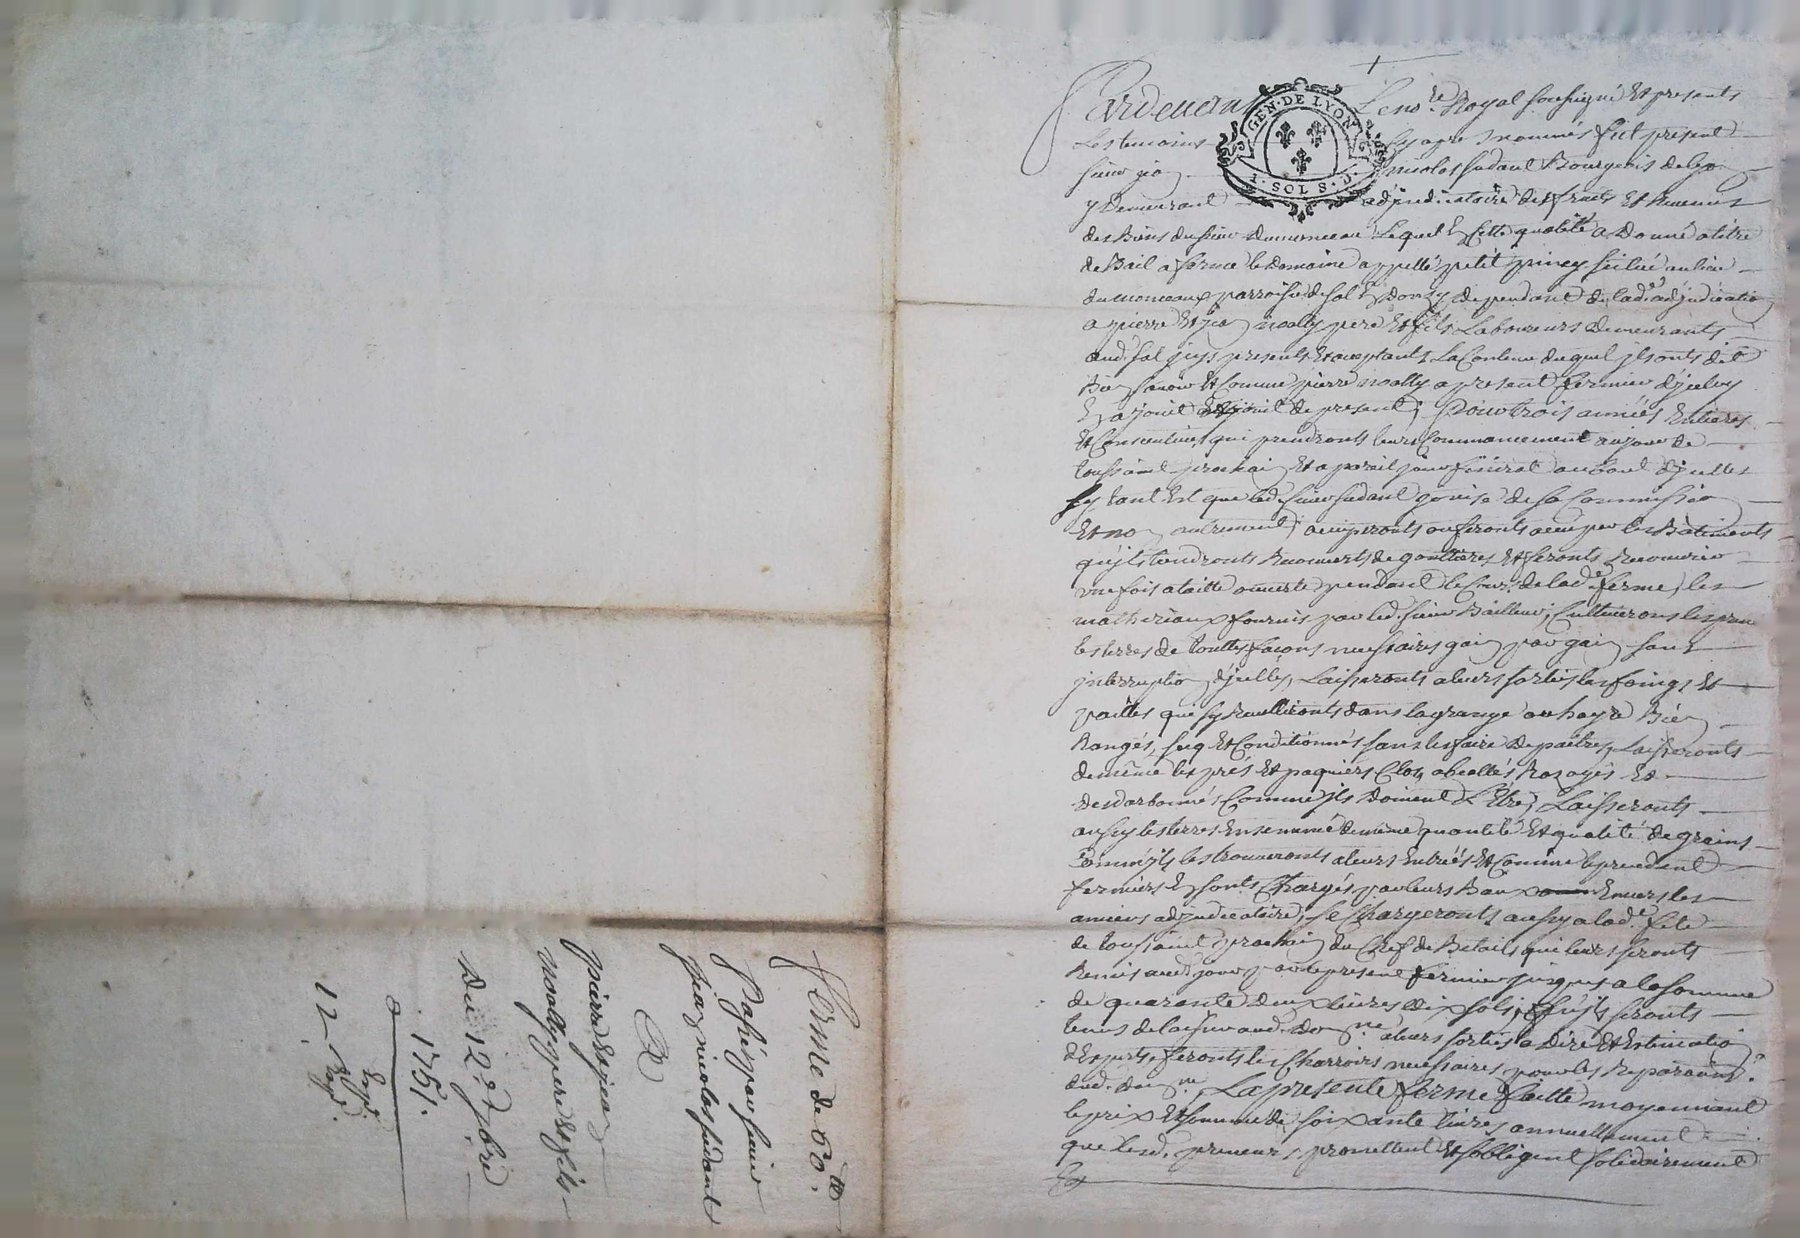 Pardevant le no.re Royal soussigné Et presents
Les temoins cy apre nommés fut present
sieur jea nicolas sudant Bourgeois de lyo
y Demeurant adjudicataire des fruits Et Revenus
des Biens du sieur Dumonceau Lequel En cette qualité a Donné a titre
de Bail a ferme le Domaine appellé petit piney situé au lieu
du monceaux parroisse de sal En Donzy dependant de lad.e adjudicatio
a pierre Et jea noally pere Et fils Laboureurs Demeurants
aud. sal jcy presents Et acceptants La Contenu duquel jls onts dit
Bie savoir Et Comme pierre noally a present fermier d'jceluy
En a jouit Et jouit de present; Pour trois années Entieres
Et Consecutives qui prendronts leurs Commancement au jour de
toussaint prochai Et a pareil jour finiront au bout d'jcelles
sy tant Est que led. sieur sudant jouisse de sa Commissio
Et no autrement; occuperonts ou feronts occuper les Batiments
qu'jls tiendronts Recouverts de gouttieres Et feronts Recouvrir
une fois a taille ouverte pendant le Cours de lad.e ferme, les
matheriaux fournis par led. sieur Bailleur; Cultiveronts les
les terres de touttes façons necessaires gai par gai sans
jnterruptio d'jcelles, Laisseronts a leurs sorties les foings Et
pailles que sy Recuillironts dans la grange ou haye Bie
Rangés, secq Et Conditionnés sans les faire Depaitres, Laisseronts
de même les prés Et paquiers Clos, abeallés Razoyés Et
desdarbonnés Comme jls Doivent L'Etre; Laisseronts
aussy les terres Ensemmé de même quantité Et qualité de grains
Comme jls les trouveronts a leurs Entrées Et Comme le precedent
fermiers En sonts Chargés par leurs Baux Envers les
anciens adjudicataire; se Chargeronts aussy a lad.e fete
de toussaint prochai du Chef de Betails qui leurs seronts
Remis aud. jour par le present fermier jusques a la somme
de quarante Deux livres Dix sols, qu'jls seronts
tenus de laisser aud. Dom.ne a leurs sorties a Dire Et Estimatio
d'Experts, feronts les Charrois necessaires pour les Reparaons
dud. dom.ne, La presente ferme faitte moyennant
le prix Et somme de soixante livres annuellement
que lesd. preneurs promettent Et s'obligent solidairement
En
ferme de 60.tt
Passée par sieur
jea nicolas sudant
A
pierre Et jea
noally pere Et fils
Du 12.e 7bre
1751.
12